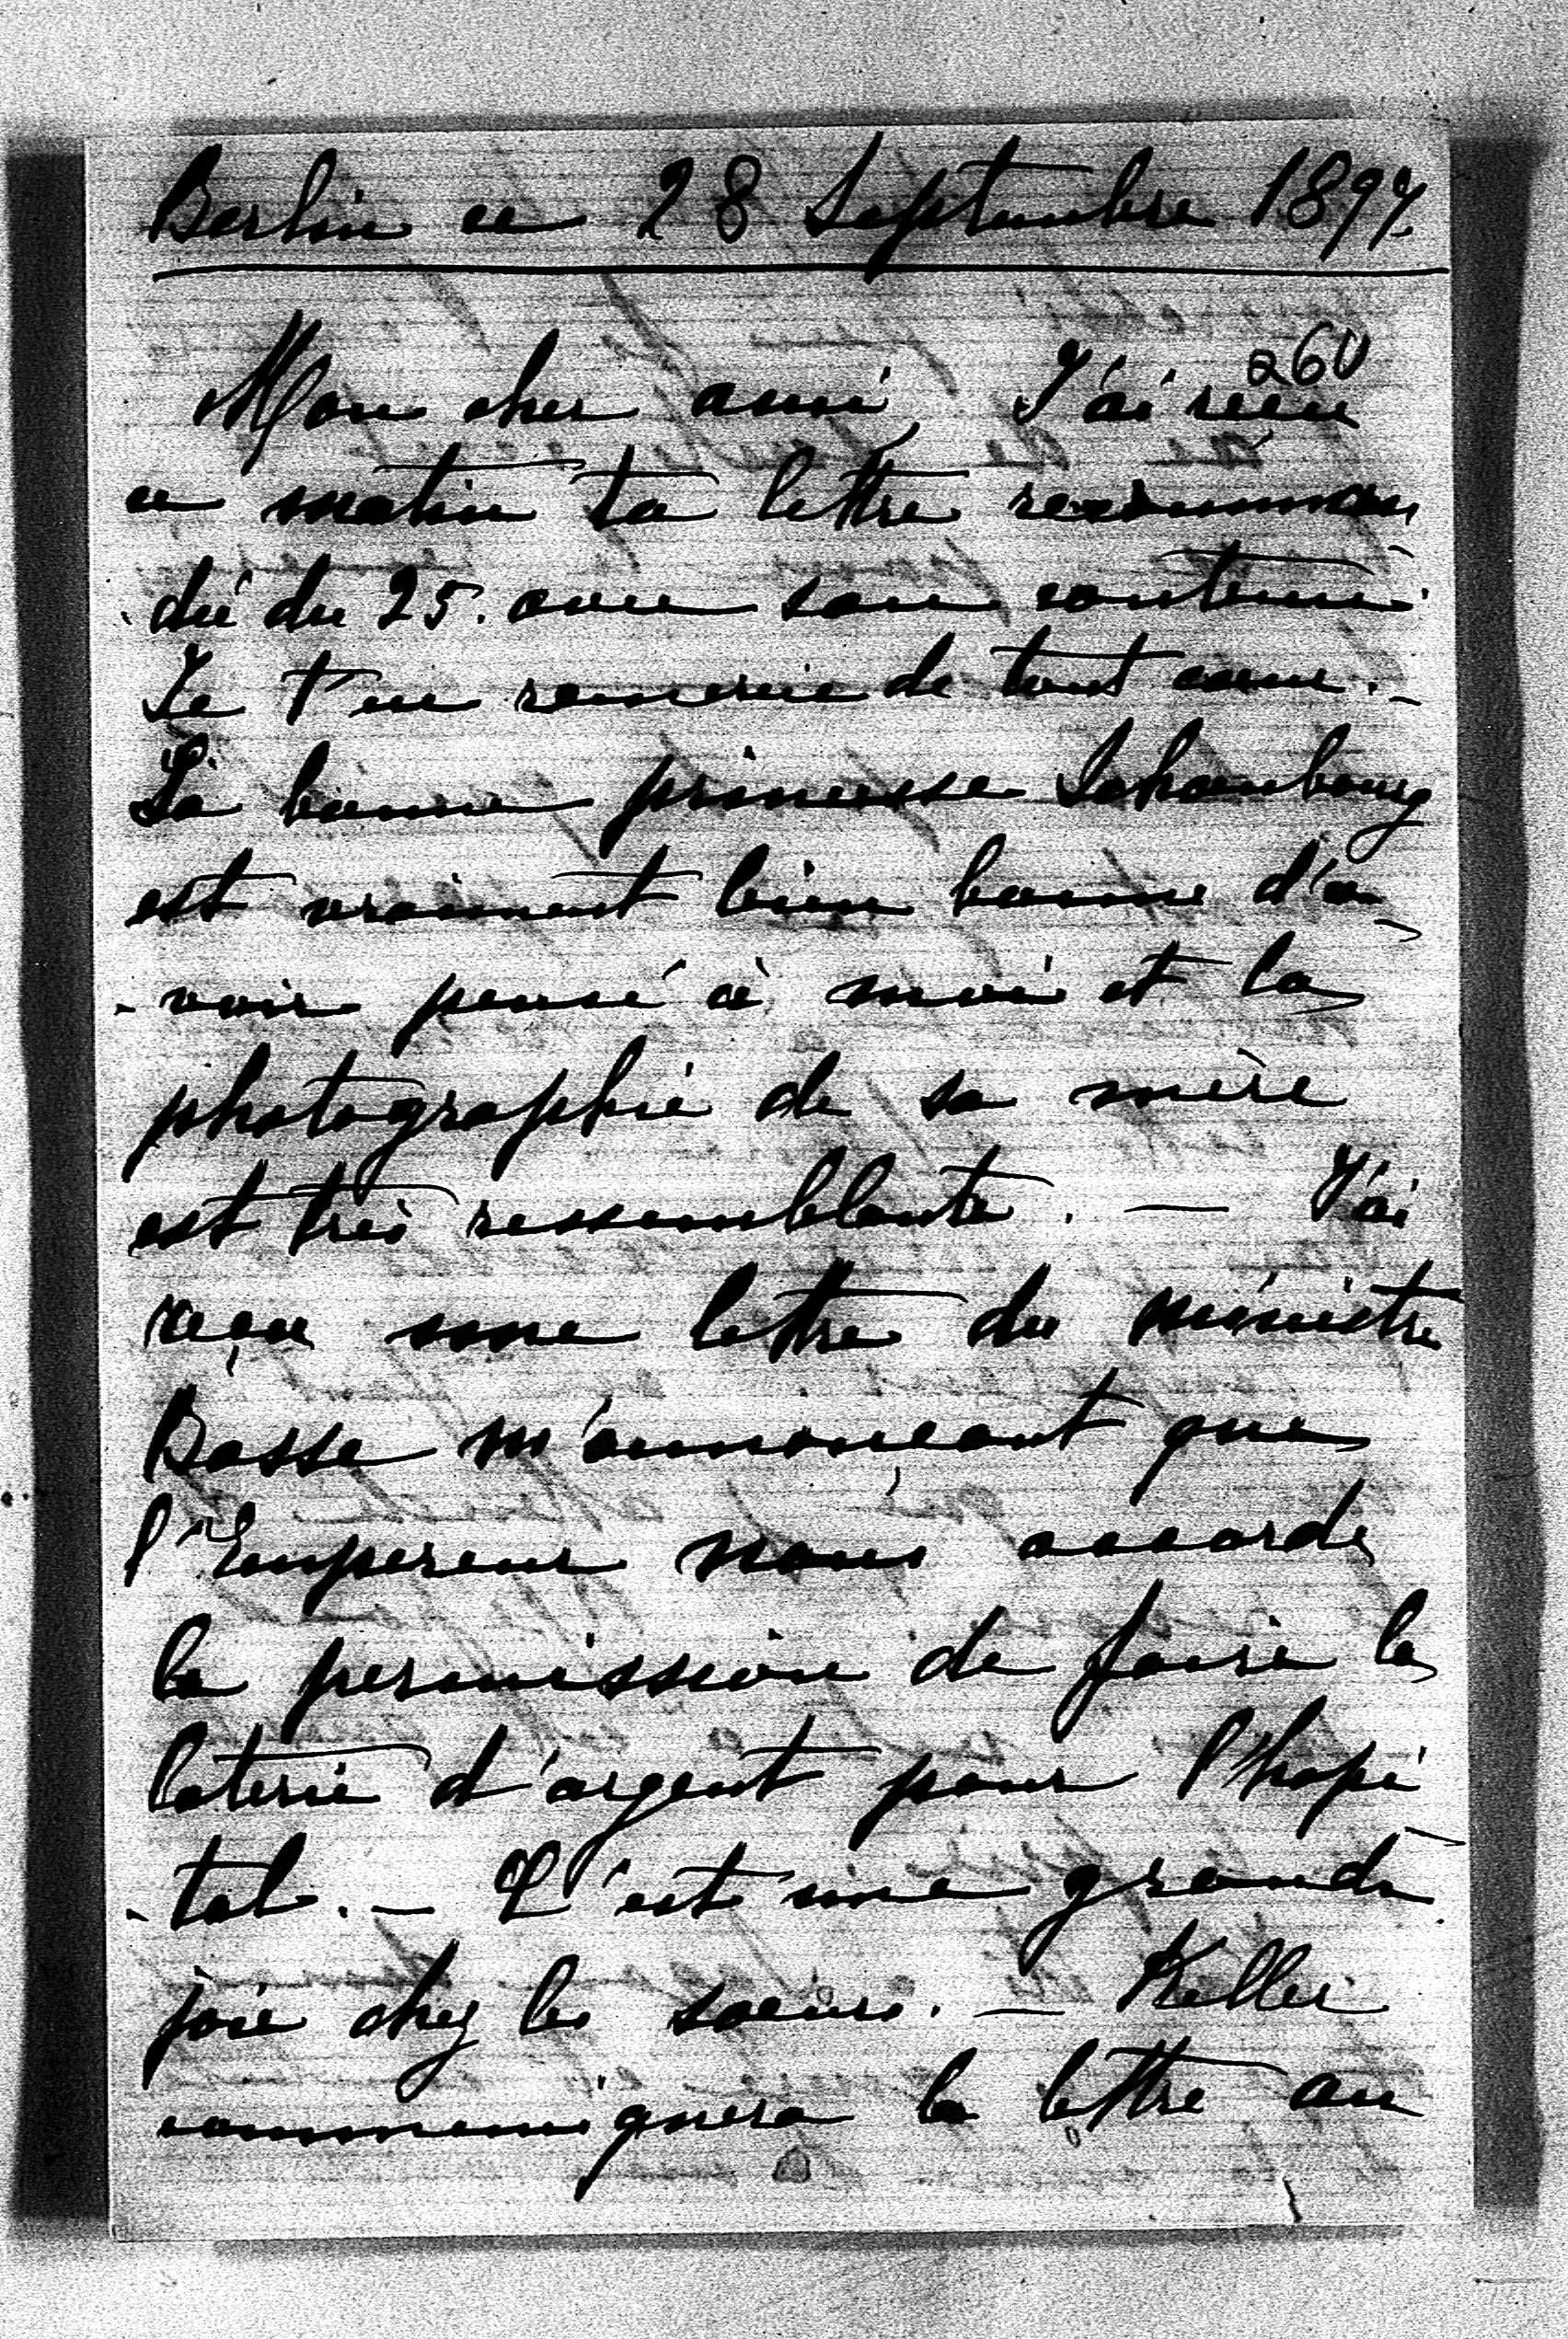 Berlin ce 28 Septembre 1897.
260
Mon cher ami, J'ai reçu
ce matin ta lettre recomman
dée du 25. avec son contenu.
Je t'en remercie de tout coeur. –
La bonne princesse Schoenbourg
est vraiment bien bonne d'a-
-voir pensé à moi et la
photographie de sa mère
est très ressemblante. — J'ai
reçu une lettre du ministre
Bosse m'annonçant que
l'Empereur nous accorde
la permission de faire la
loterie d'argent pour l'hopi-
-tal. — C'est une grande
joie chez les soeurs. — Keller
communiquera la lettre au